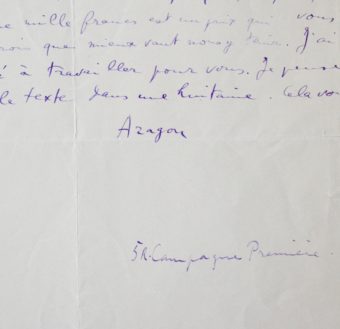 e mille francs est un prix qui vous
rois que mieux vaut nous y tenir. J'ai
é à travailler pour vous. Je pense
le texte dans une huitaine. Cela vou
Aragon
5 R. Campagne Première.